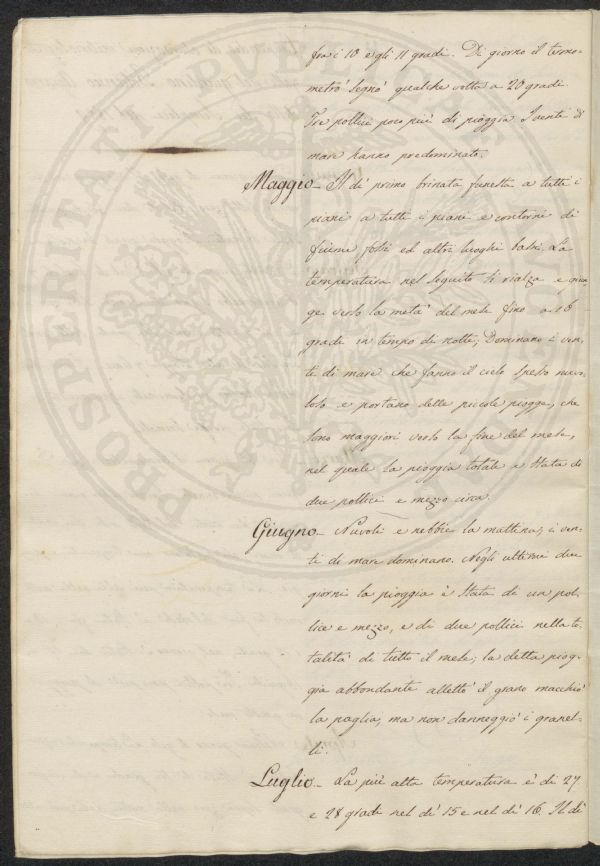 fra i 10 e gli 11 gradi. Di giorno il termo-
metro segnò qualche volta a 20 gradi.
Tre pollici poco più di pioggia I venti di
mare hanno predominato.
Maggio - Il dì primo brinata funesta a tutti i
piani a tutti i piani e contorni di
fiumi fossi ed altri luoghi bassi. La
temperatura nel seguito si rialza e giun
ge verso la metà del mese fino a 16
gradi in tempo di notte; Dominano i ven-
ti di mare che fanno il cielo spesso nuvo-
loso e portano delle piccole piogge, che
sono maggiori verso la fine del mese,
nel quale la pioggia totale e stata di
due pollici e mezzo circa.
Giugno - Nuvoli e nebbie la mattina; i ven-
ti di mare dominano. Negli ultimi due
giorni la pioggia è stata di un pol-
lice e mezzo, e di due pollici nella to-
talità di tutto il mese; la detta piog-
gia abbondante allettò il grano macchiò
la paglia, ma non danneggiò i granel-
li.
Luglio - La più alta temperatura è di 27
e 28 gradi nel dì 15 e nel dì 16. Il dì
PROSPERITATI PVBLICAE